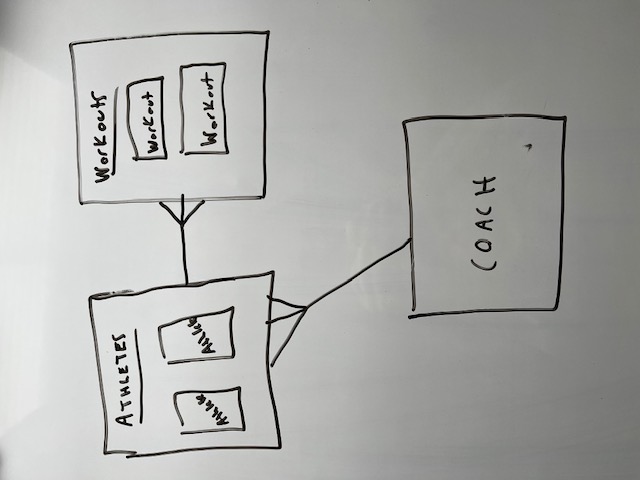 ATHLETES
Athlete
Athlete
Workouts
Workout
Workout
COACH